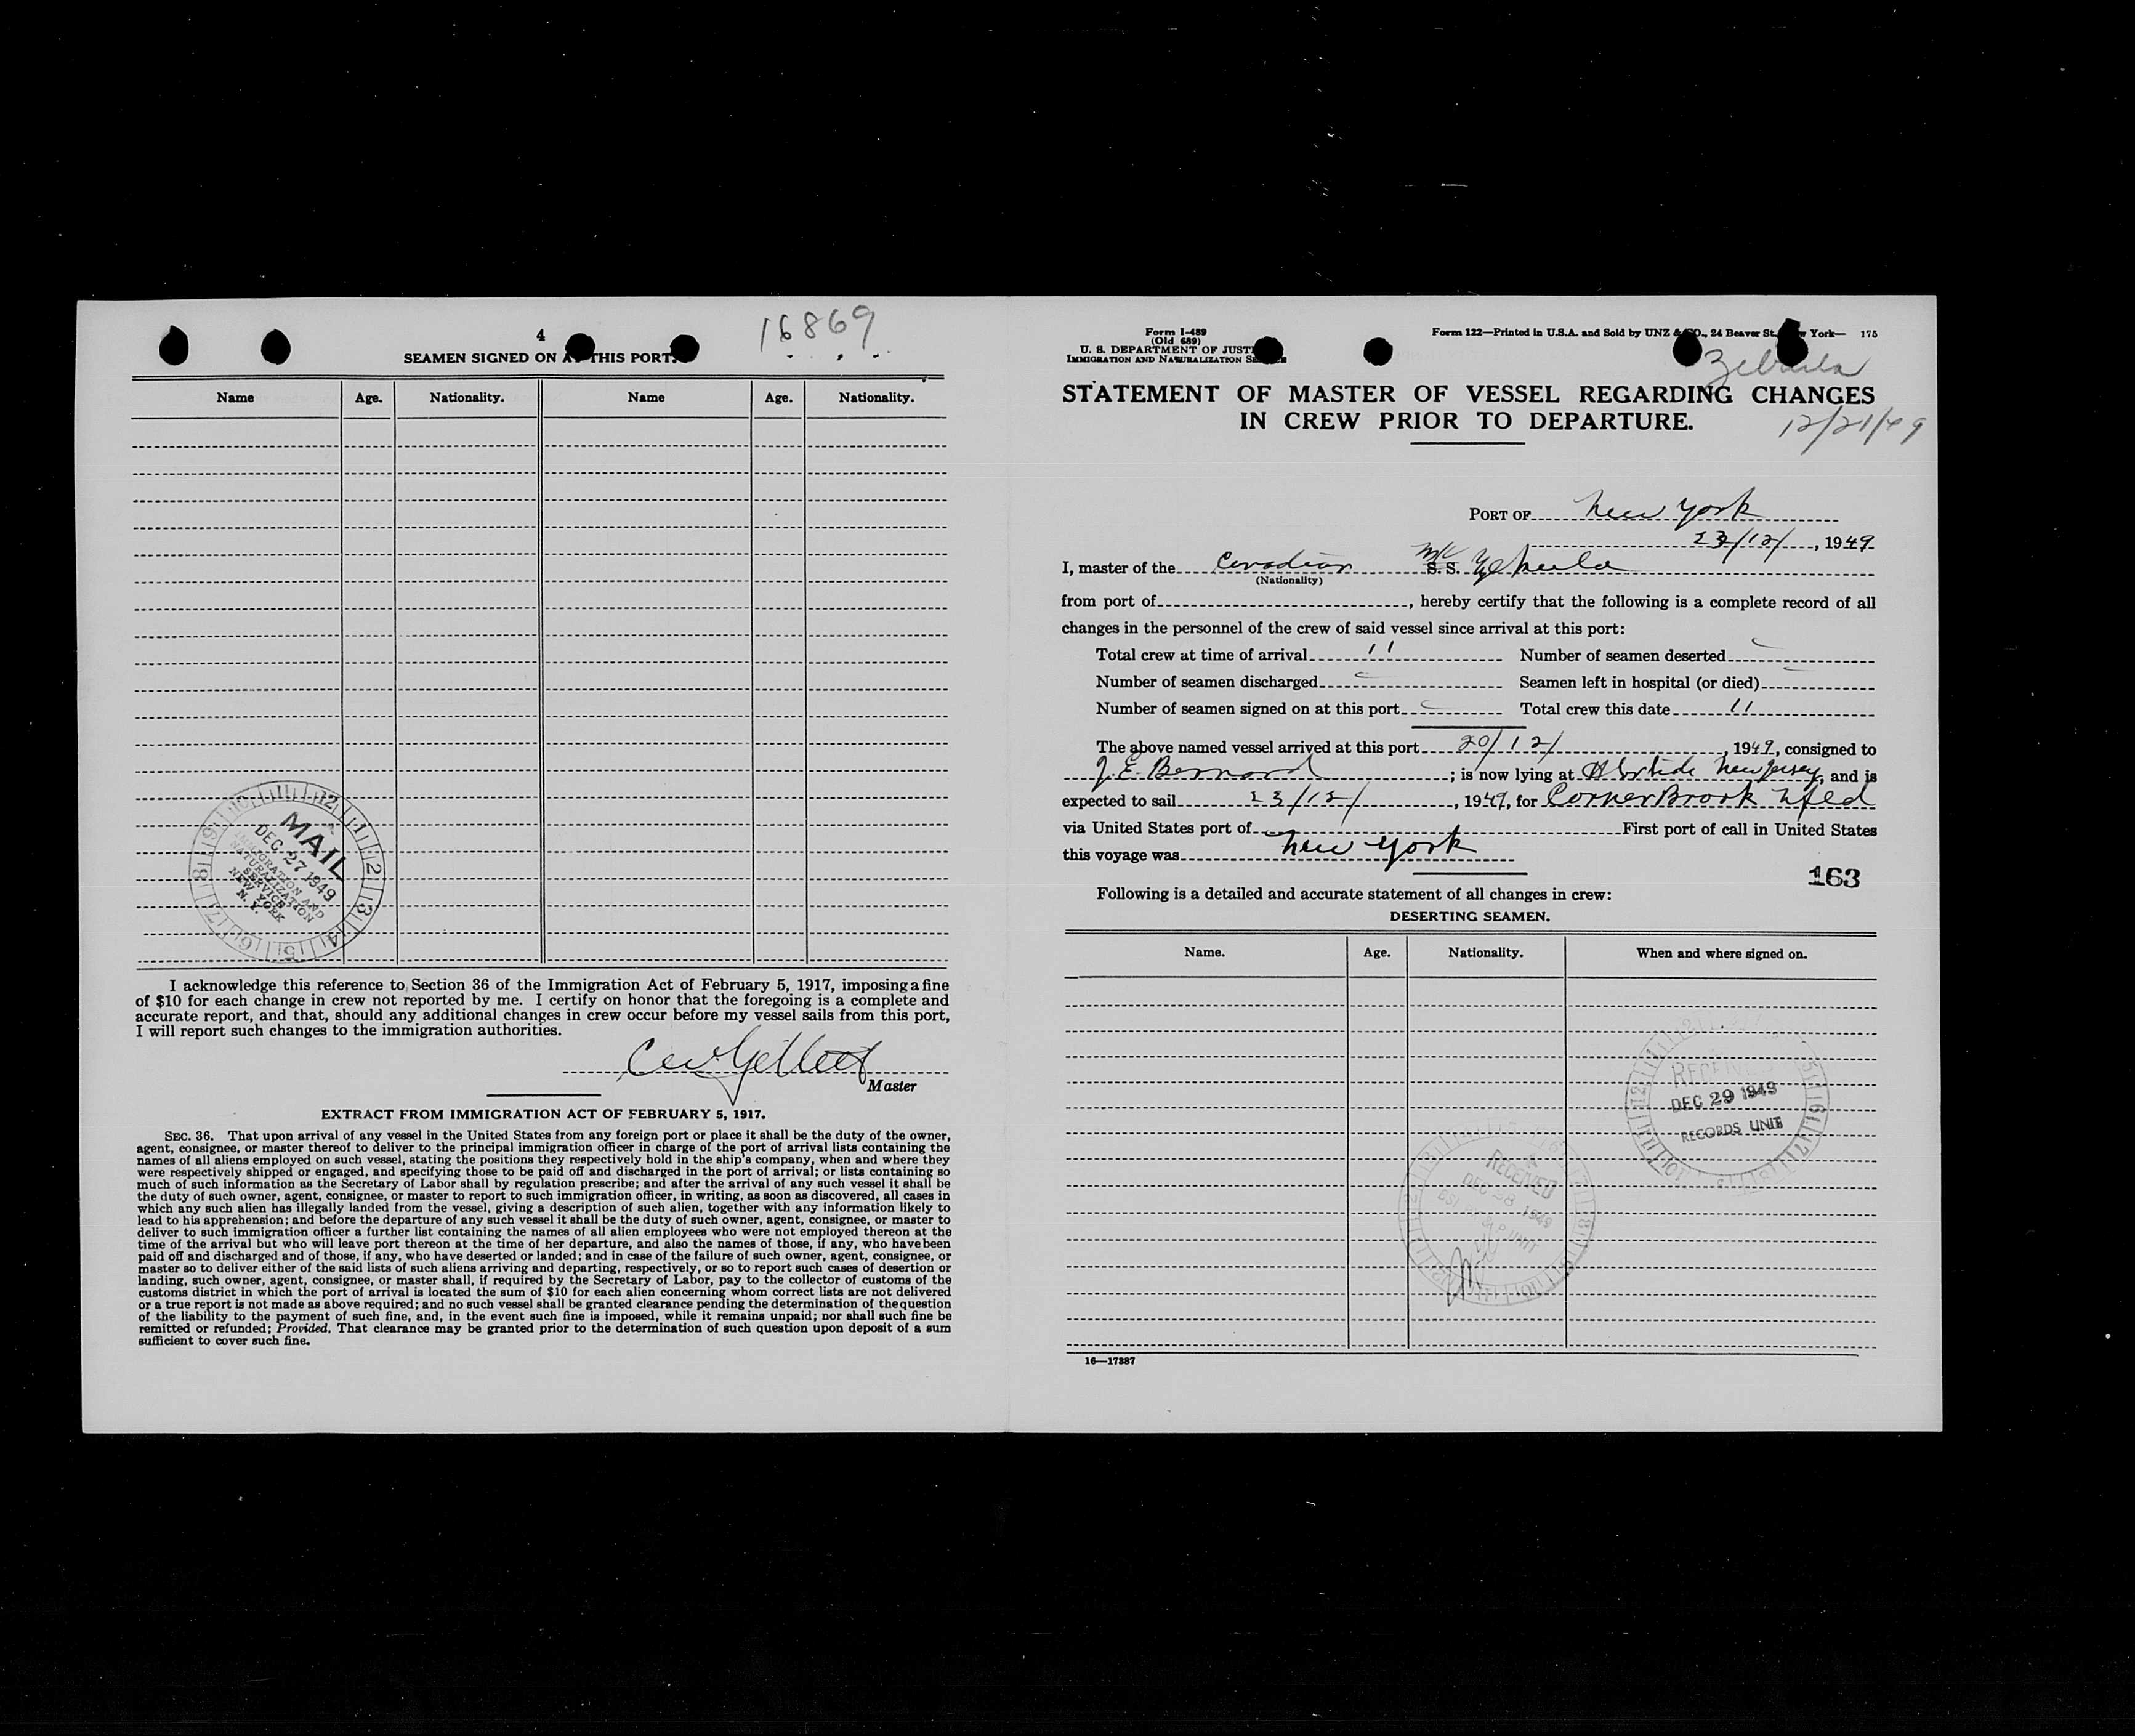 4
16869
SEAMEN SIGNED ON AT THIS PORT.
Name Age. Nationality. Name Age. Nationality.
MAIL
DEC 27 1949
IMMIGRATION AND
NATURALIZATION
SERVICE
NEW YORK
N. Y.
I acknowledge this reference to Section 36 of the Immigration Act of February 5, 1917, imposing a fine
of $10 for each change in crew not reported by me. I certify on honor that the foregoing is a complete and
accurate report, and that, should any additional changes in crew occur before my vessel sails from this port,
I will report such changes to the immigration authorities.
Master
EXTRACT FROM IMMIGRATION ACT OF FEBRUARY 5, 1917.
SEC. 36. That upon arrival of any vessel in the United States from any foreign port or place it shall be the duty of the owner,
agent, consignee, or master thereof to deliver to the principal immigration officer in charge of the port of arrival lists containing the
names of all aliens employed on such vessel, stating the positions they respectively hold in the ship's company, when and where they
were respectively shipped or engaged, and specifying those to be paid off and discharged in the port of arrival; or lists containing so
much of such information as the Secretary of Labor shall by regulation prescribe; and after the arrival of any such vessel it shall be
the duty of such owner, agent, consignee, or master to report to such immigration officer, in writing, as soon as discovered, all cases in
which any such alien has illegally landed from the vessel, giving a description of such alien, together with any information likely to
lead to his apprehension; and before the departure of any such vessel it shall be the duty of such owner, agent, consignee, or master to
deliver to such immigration officer a further list containing the names of all alien employees who were not employed thereon at the
time of the arrival but who will leave port thereon at the time of her departure, and also the names of those, if any, who have been
paid off and discharged and of those, if any, who have deserted or landed; and in case of the failure of such owner, agent, consignee, or
master so to deliver either of the said lists of such aliens arriving and departing, respectively, or so to report such cases of desertion or
landing, such owner, agent, consignee, or master shall, if required by the Secretary of Labor, pay to the collector of customs of the
customs district in which the port of arrival is located the sum of $10 for each alien concerning whom correct lists are not delivered
or a true report is not made as above required; and no such vessel shall be granted clearance pending the determination of the question
of the liability to the payment of such fine, and, in the event such fine is imposed, while it remains unpaid; nor shall such fine be
remitted or refunded; Provided, That clearance may be granted prior to the determination of such question upon deposit of a sum
sufficient to cover such fine.
Form I-489
(Old 689)
U. S. DEPARTMENT OF JUST
IMMIGRATION AND NATURALIZATION S
Form 122—Printed in U.S.A. and Sold by UNZ & CO., 24 Beaver St. York— 175
STATEMENT OF MASTER OF VESSEL REGARDING CHANGES
IN CREW PRIOR TO DEPARTURE.
12/21/49
PORT OF New York
23/12/, 1949
I, master of the Canadian S. S.
(Nationality)
from port of , hereby certify that the following is a complete record of all
changes in the personnel of the crew of said vessel since arrival at this port:
Total crew at time of arrival 11 Number of seamen deserted
Number of seamen discharged Seamen left in hospital (or died)
Number of seamen signed on at this port Total crew this date 11
The above named vessel arrived at this port 20/12/, 1949, consigned to
J. E. Bernard ; is now lying at New Jersey, and is
expected to sail 23/12/, 1949, for Corner Brook Nfld
via United States port of First port of call in United States
this voyage was New York
163
Following is a detailed and accurate statement of all changes in crew:
DESERTING SEAMEN.
Name. Age. Nationality. When and where signed on.
RECEIVED
DEC 29 1949
RECORDS UNIT
RECEIVED
DEC 28 1949
UNIT
16—17887